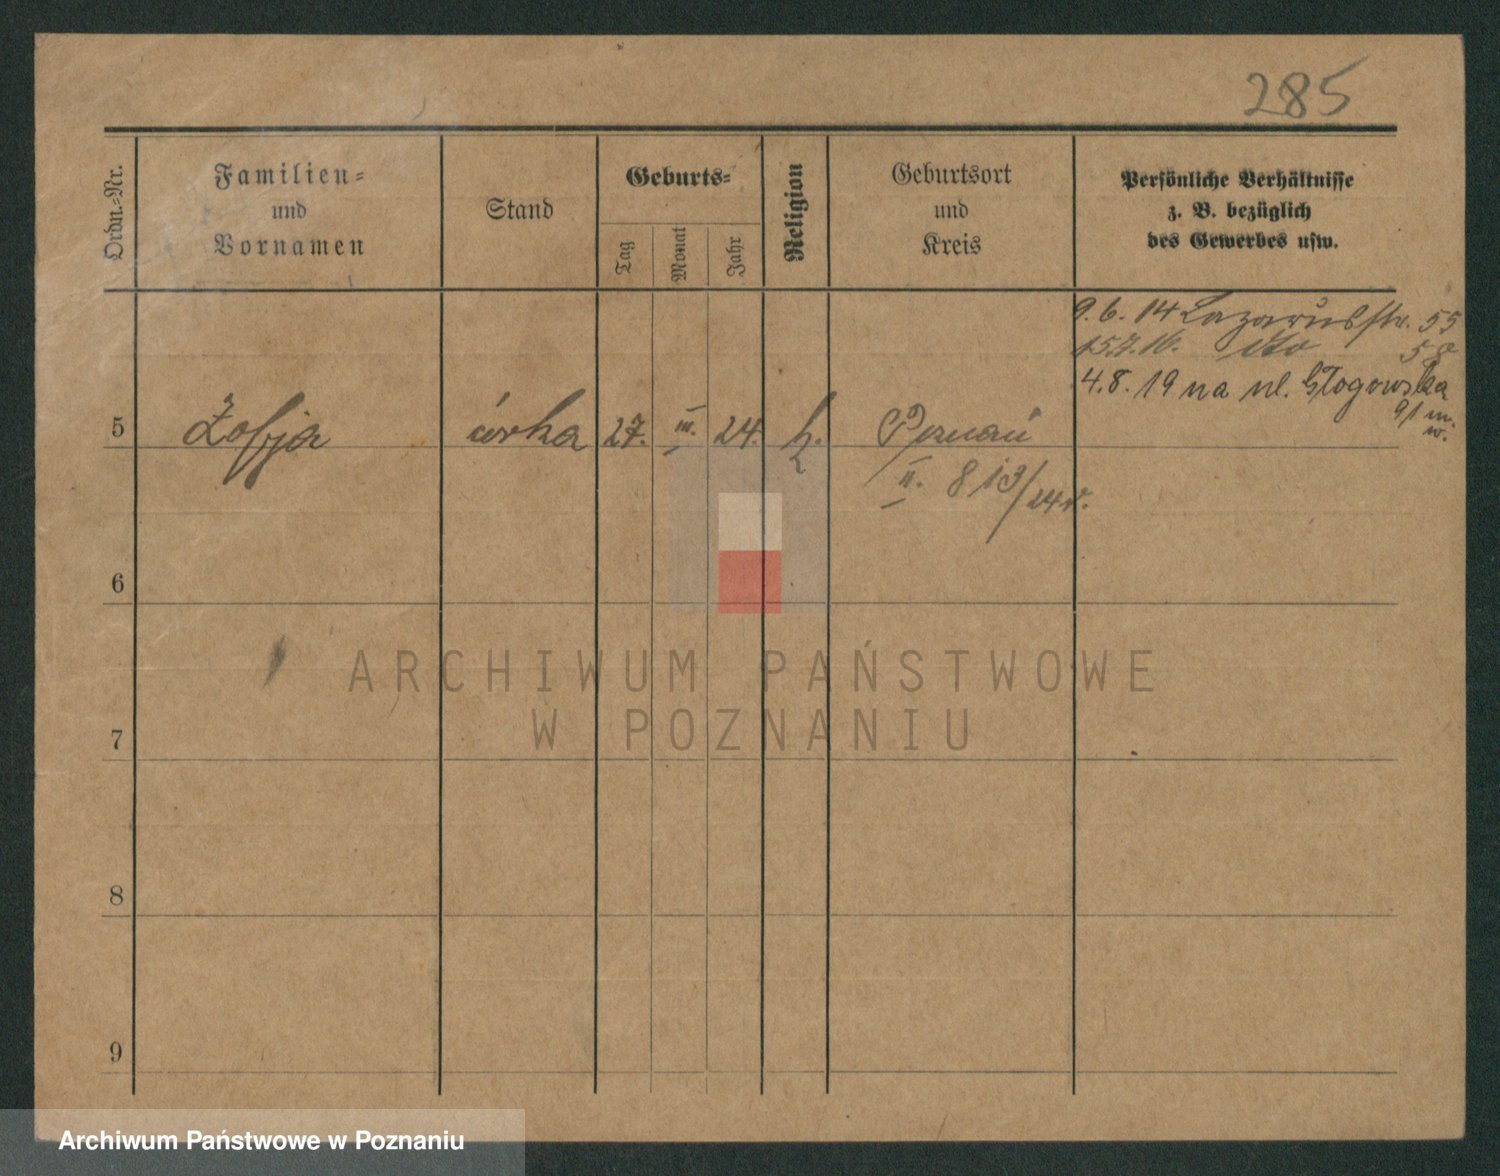 285
Ordn.-Nr.
Familien-
und
Vornamen
Stand
Geburts-
Tag
Monat
Jahr
Religion
Geburtsort
und
Kreis
Persönliche Verhältnisse
z. B. bezüglich
des Gewerbes usw.
9.6.14 Lazarusstr. 55
15.7.16. dto 58
4.8.19 na ul. Głogowska
91 m.
w.
5 Zofja córka 27. III. 24. k. Poznań
II. 813/24 r.
6
7
8
9
ARCHIWUM PAŃSTWOWE
W POZNANIU
Archiwum Państwowe w Poznaniu